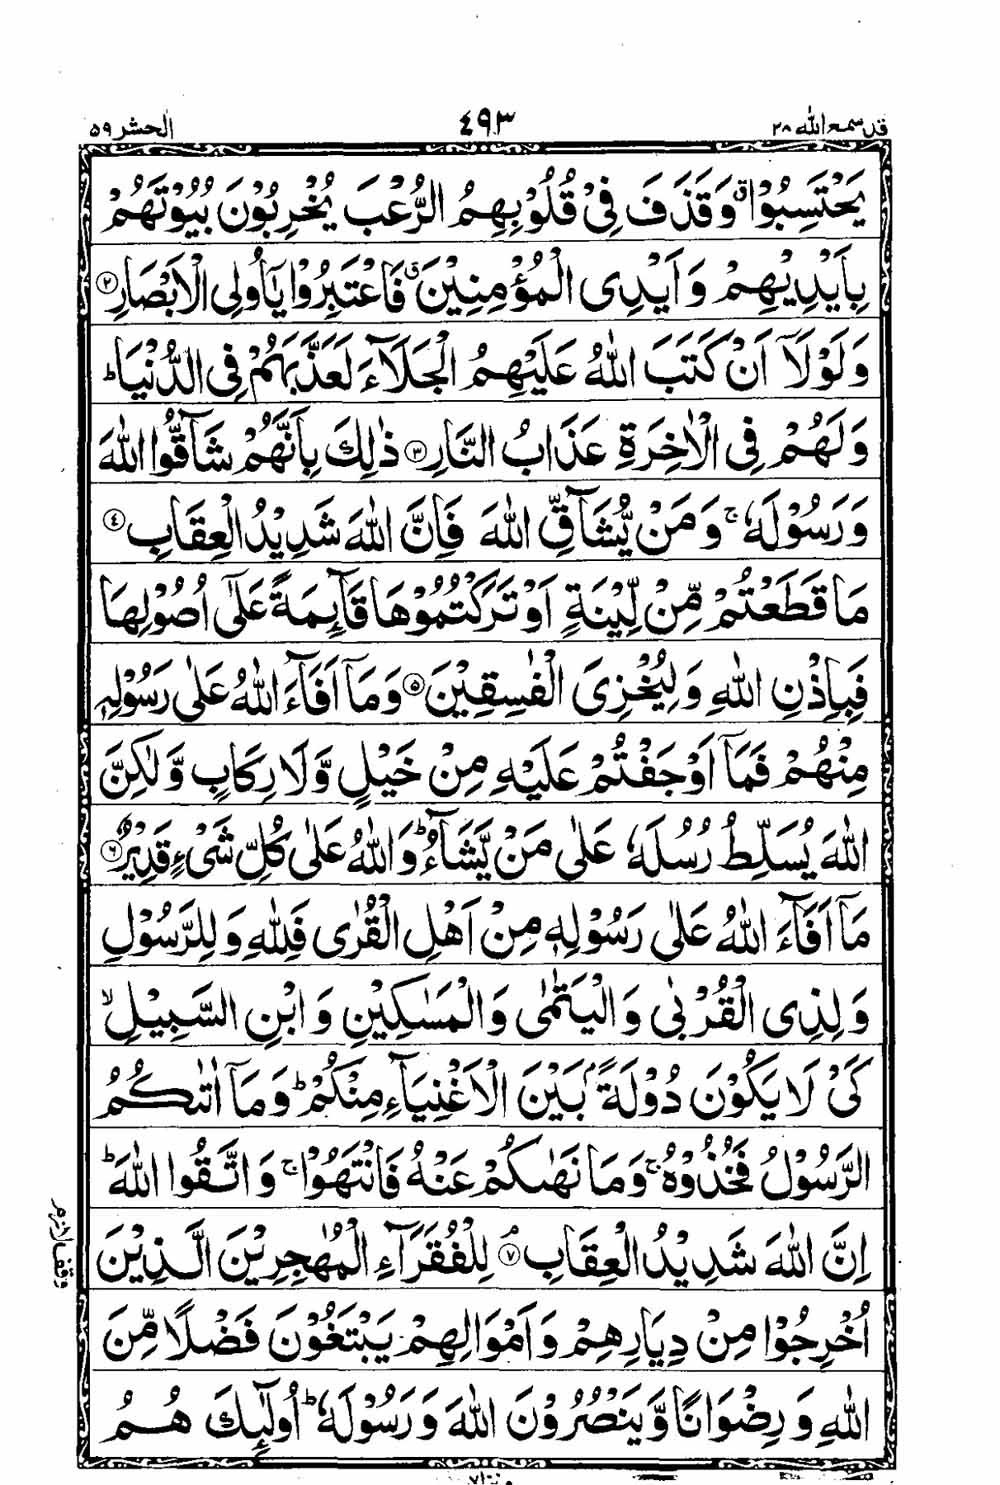 قد سمع الله ٢٨ ٤٩٣ الحشر ٥٩
يَحْتَسِبُوْا ۗ وَقَذَفَ فِيْ قُلُوْبِهِمُ الرُّعْبَ يُخْرِبُوْنَ بُيُوْتَهُمْ
بِاَيْدِيْهِمْ وَاَيْدِى الْمُؤْمِنِيْنَ ۗ فَاعْتَبِرُوْا يٰۤاُولِى الْاَبْصَارِ ۝٢
وَلَوْلَاۤ اَنْ كَتَبَ اللّٰهُ عَلَيْهِمُ الْجَلَآءَ لَعَذَّبَهُمْ فِى الدُّنْيَا ؕ
وَلَهُمْ فِى الْاٰخِرَةِ عَذَابُ النَّارِ ۝٣ ذٰلِكَ بِاَنَّهُمْ شَآقُّوا اللّٰهَ
وَرَسُوْلَهٗ ۚ وَمَنْ يُّشَآقِّ اللّٰهَ فَاِنَّ اللّٰهَ شَدِيْدُ الْعِقَابِ ۝٤
مَا قَطَعْتُمْ مِّنْ لِّيْنَةٍ اَوْ تَرَكْتُمُوْهَا قَآئِمَةً عَلٰۤى اُصُوْلِهَا
فَبِاِذْنِ اللّٰهِ وَلِيُخْزِىَ الْفٰسِقِيْنَ ۝٥ وَمَاۤ اَفَآءَ اللّٰهُ عَلٰى رَسُوْلِهٖ
مِنْهُمْ فَمَاۤ اَوْجَفْتُمْ عَلَيْهِ مِنْ خَيْلٍ وَّلَا رِكَابٍ وَّلٰكِنَّ
اللّٰهَ يُسَلِّطُ رُسُلَهٗ عَلٰى مَنْ يَّشَآءُ ؕ وَاللّٰهُ عَلٰى كُلِّ شَىْءٍ قَدِيْرٌ ۝٦
مَاۤ اَفَآءَ اللّٰهُ عَلٰى رَسُوْلِهٖ مِنْ اَهْلِ الْقُرٰى فَلِلّٰهِ وَلِلرَّسُوْلِ
وَلِذِى الْقُرْبٰى وَالْيَتٰمٰى وَالْمَسٰكِيْنِ وَابْنِ السَّبِيْلِ ۙ
كَىْ لَا يَكُوْنَ دُوْلَةًۢ بَيْنَ الْاَغْنِيَآءِ مِنْكُمْ ؕ وَمَاۤ اٰتٰىكُمُ
الرَّسُوْلُ فَخُذُوْهُ ۚ وَمَا نَهٰىكُمْ عَنْهُ فَانْتَهُوْا ۚ وَاتَّقُوا اللّٰهَ ؕ
اِنَّ اللّٰهَ شَدِيْدُ الْعِقَابِ ۘ ۝٧ لِلْفُقَرَآءِ الْمُهٰجِرِيْنَ الَّذِيْنَ
وقف لازم
اُخْرِجُوْا مِنْ دِيَارِهِمْ وَاَمْوَالِهِمْ يَبْتَغُوْنَ فَضْلًا مِّنَ
اللّٰهِ وَرِضْوَانًا وَّيَنْصُرُوْنَ اللّٰهَ وَرَسُوْلَهٗ ؕ اُولٰٓئِكَ هُمُ